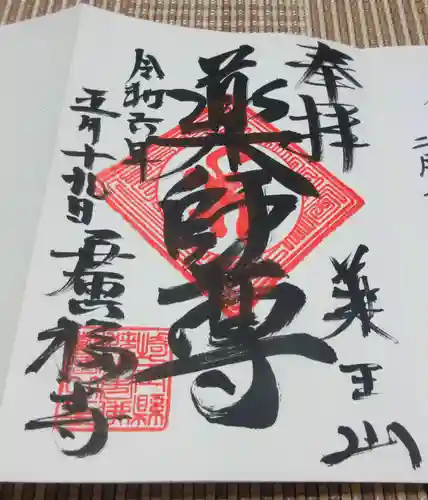 奉拝
薬王山
薬師尊
令和六年
五月十九日
福寺